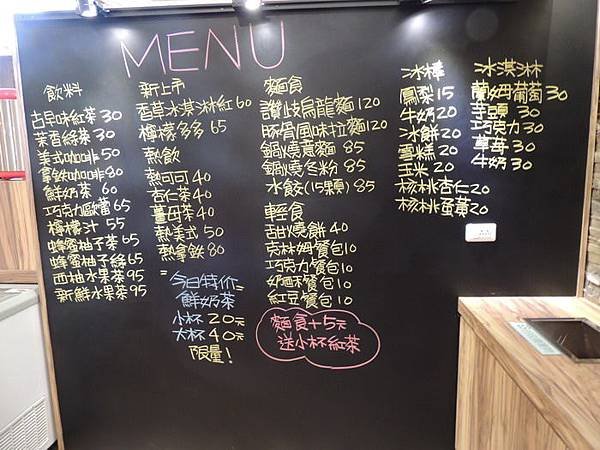 MENU
飲料
古早味紅茶 30
茉香綠茶 30
美式咖啡 50
拿鉄咖啡 80
鮮奶茶 60
巧克力歐蕾 65
檸檬汁 55
蜂蜜柚子茶 65
蜂蜜柚子綠 65
西柚水果茶 95
新鮮水果茶 95
新上市
香草冰淇淋紅 60
檸檬多多 65
熱飲
熱可可 40
杏仁茶 40
薑母茶 40
熱美式 50
熱拿鉄 80
今日特价
鮮奶茶
小杯 20元
大杯 40元
限量!
麵食
讃歧烏龍麵 120
豚骨風味拉麵 120
鍋燒意麵 85
鍋燒冬粉 85
水餃(15顆) 85
輕食
甜燒餅 40
克林姆餐包 10
巧克力餐包 10
奶酥餐包 10
紅豆餐包 10
麵食+5元
送小杯紅茶
冰棒
鳳梨 15
牛奶 20
冰餅 20
雪糕 20
玉米 20
核桃杏仁 20
核桃蛋黃 20
冰淇淋
蘭姆葡萄 30
芋頭 30
巧克力 30
草莓 30
牛奶 30